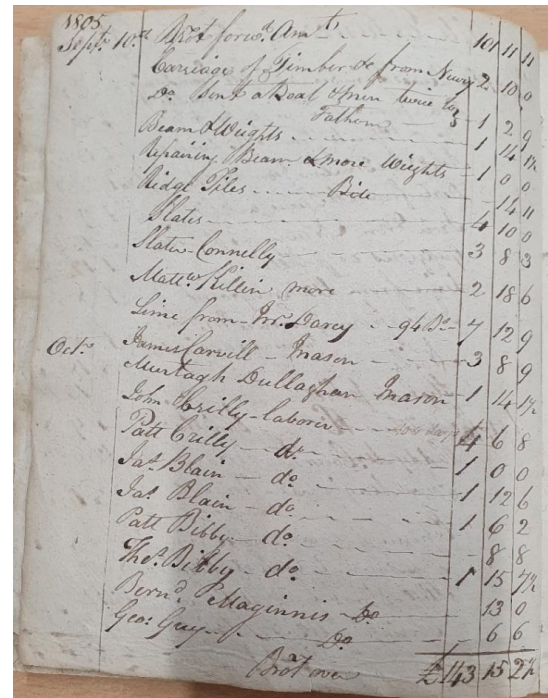 1805
Sept. 10th Brot forwd. Amt. 101 11 11
Carriage of Timber &c from Newry 2 10 0
Do. Sent a Boat & men twice to
Fathom 1 2 9
Beam & Weights 1 14 1½
Repairing Beam & more Weights 1 0 0
Ridge Tiles Bide 14 11
Slates 4 10 0
Slater Connelly 3 8 3
Mattw. Killin more 2 18 6
Lime from Mr. Darcy 94 Bs. 7 12 9
Octr. James Carvill Mason 3 8 9
Murtagh Dullaghan Mason 1 14 1½
John Crilly laborer 4 6 8
Patt Crilly do. 1 0 0
Jas. Blain do. 1 12 6
Jas. Blain do. 1 6 2
Patt Bibby do. 8 8
Thos. Bibby do. 1 15 7½
Bernd. Maginnis Do 13 0
Geo: Guy Do 6 6
Brot over £143 15 2½